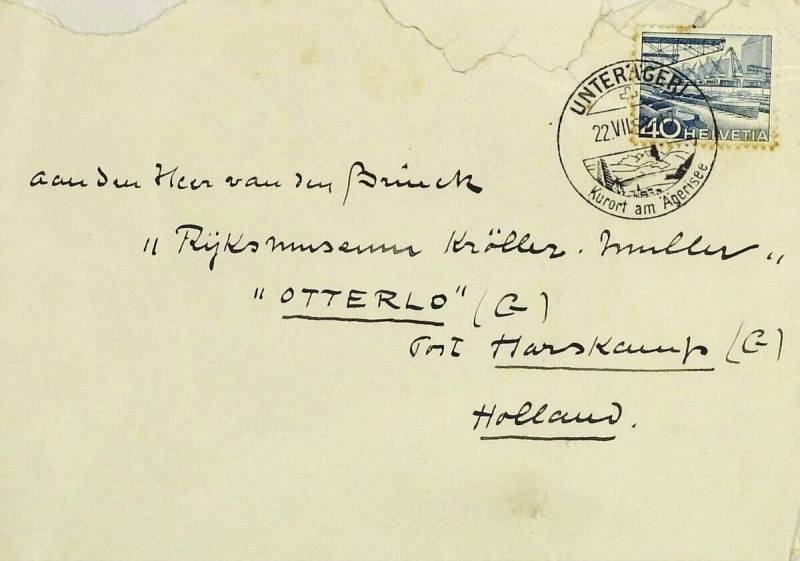 UNTERÄGERI
22.VII.52
Kurort am Ägerisee
40 HELVETIA
aan den Heer van den Brinck
„ Rijksmuseum Kröller. Muller „
"OTTERLO" (G)
Post Harskamp (G)
Holland.